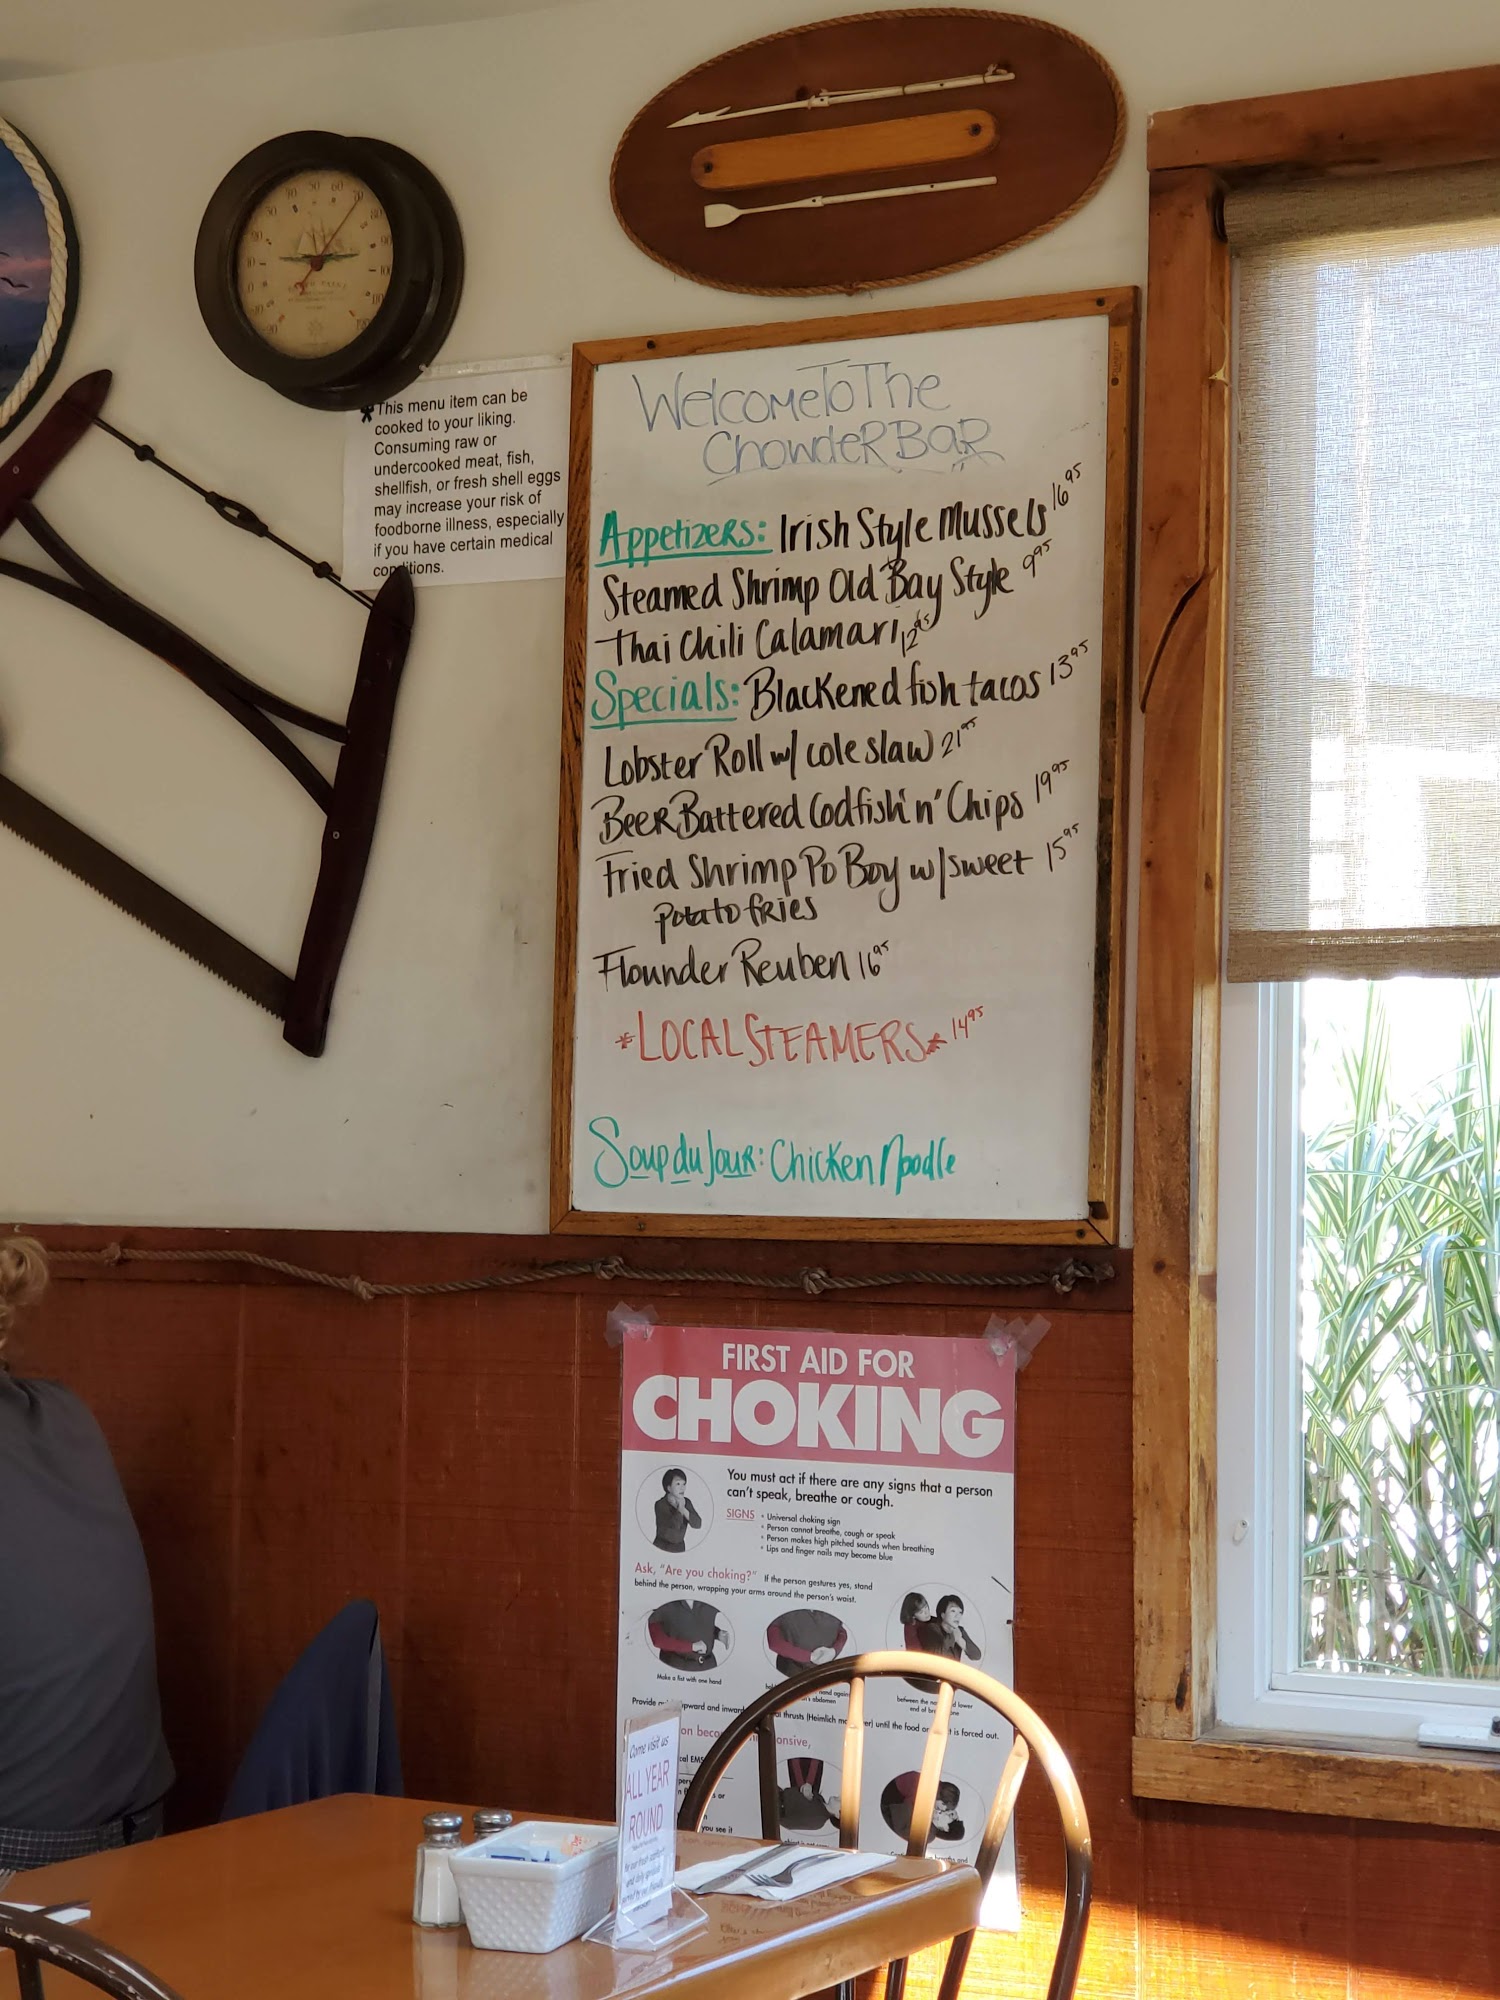 50
60
70
80
90
100
✱This menu item can be
cooked to your liking.
Consuming raw or
undercooked meat, fish,
shellfish, or fresh shell eggs
may increase your risk of
foodborne illness, especially
if you have certain medical
conditions.
Welcome To The
Chowder Bar
Appetizers: Irish Style Mussels 16.95
Steamed Shrimp Old Bay Style 9.95
Thai Chili Calamari 12.95
Specials: Blackened fish tacos 13.95
Lobster Roll w/ cole slaw 21.95
Beer Battered Codfish 'n' Chips 19.95
Fried Shrimp Po Boy w/sweet 15.95
potato fries
Flounder Reuben 16.95
*LOCAL STEAMERS* 14.95
Soup du Jour: Chicken Noodle
FIRST AID FOR
CHOKING
You must act if there are any signs that a person
can't speak, breathe or cough.
SIGNS • Universal choking sign
• Person cannot breathe, cough or speak
• Person makes high pitched sounds when breathing
• Lips and finger nails may become blue
Ask, "Are you choking?" If the person gestures yes, stand
behind the person, wrapping your arms around the person's waist.
Make a fist with one hand
abdomen
between the lower
end of
Provide upward and inward thrusts (Heimlich until the food or is forced out.
you see it
Come visit us
ALL YEAR
ROUND